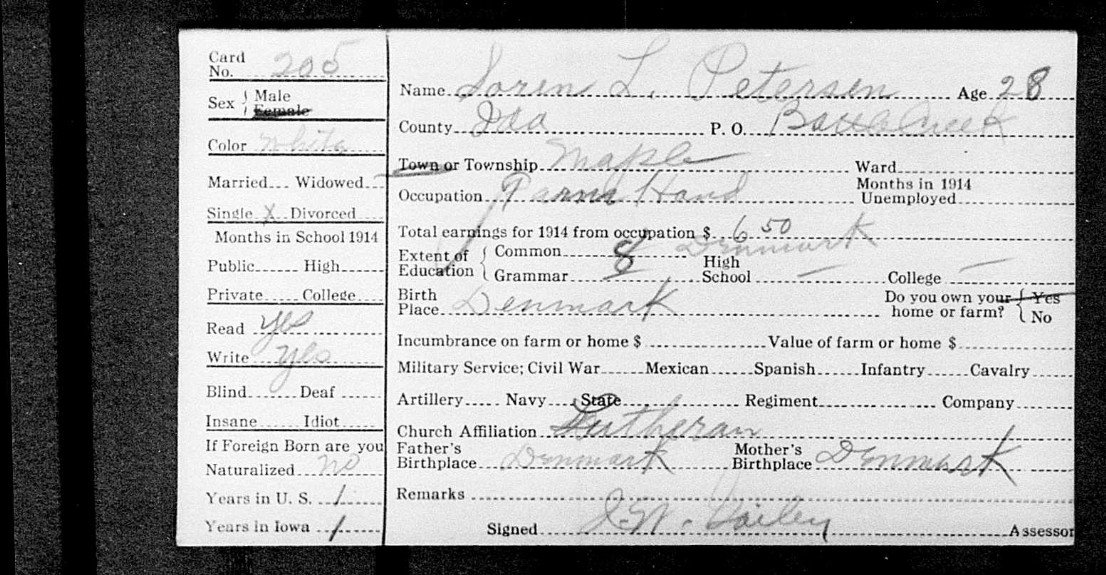 Card No. 205
Sex { Male Female
Color White
Married Widowed
Single X Divorced
Months in School 1914
Public High
Private College
Read yes
Write yes
Blind Deaf
Insane Idiot
If Foreign Born are you
Naturalized no
Years in U. S. 1
Years in Iowa 1
Name Soren L. Petersen Age 28
County Ida P. O. Battle Creek
Town or Township Maple Ward
Occupation Farm Hand Months in 1914 Unemployed
Total earnings for 1914 from occupation $ 650
Denmark
Extent of Education { Common 8 Grammar High School — College —
Birth Place Denmark Do you own your home or farm? { Yes No
Incumbrance on farm or home $ Value of farm or home $
Military Service; Civil War Mexican Spanish Infantry Cavalry
Artillery Navy State Regiment Company
Church Affiliation Lutheran
Father's Birthplace Denmark Mother's Birthplace Denmark
Remarks
Signed J. W. Assessor